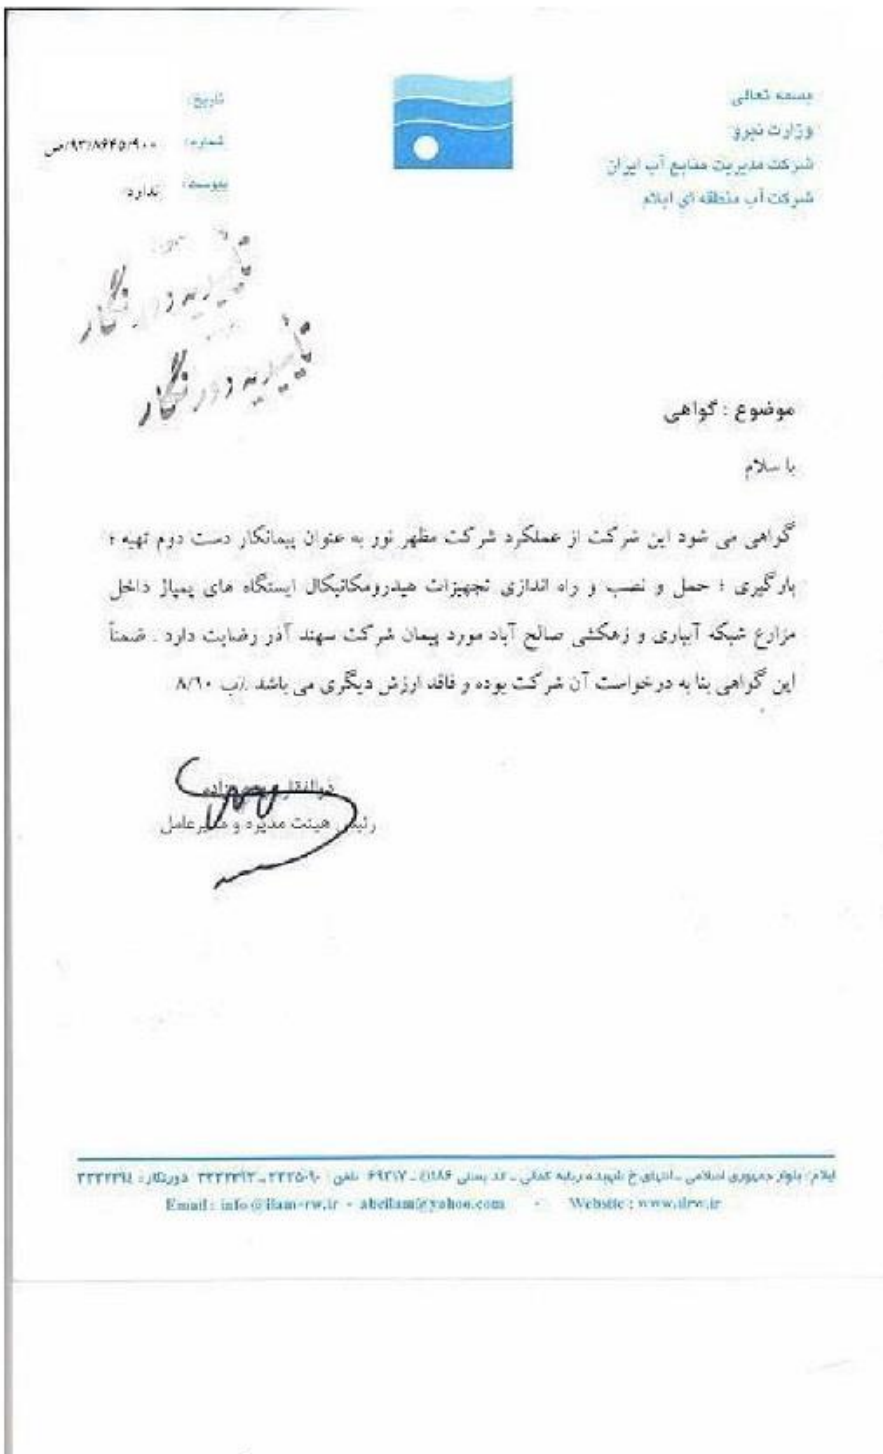 بسمه تعالی
وزارت نیرو
شرکت مدیریت منابع آب ایران
شرکت آب منطقه ای ایلام
تاریخ:
شماره: ۹۳/۸۶۴۵/۹۰۰/ص
پیوست: ندارد
تاییدیه دورنگار
تاییدیه دورنگار
موضوع : گواهی
با سلام
گواهی می شود این شرکت از عملکرد شرکت مظهر نور به عنوان پیمانکار دست دوم تهیه ؛
بارگیری ؛ حمل و نصب و راه اندازی تجهیزات هیدرومکانیکال ایستگاه های پمپاژ داخل
مزارع شبکه آبیاری و زهکشی صالح آباد مورد پیمان شرکت سهند آذر رضایت دارد . ضمناً
این گواهی بنا به درخواست آن شرکت بوده و فاقد ارزش دیگری می باشد /ب ۸/۱۰
ذوالفقار
رئیس هیئت مدیره و مدیرعامل
ایلام: بلوار جمهوری اسلامی - انتهای خ شهیده ربابه کمالی - کد پستی ۴۱۱۸۶ - ۶۹۳۱۷ تلفن : دورنگار : ۳۳۳۲۳۹۴
Email : info@ilam-rw.ir - abeilam@yahoo.com - Website : www.ilrw.ir